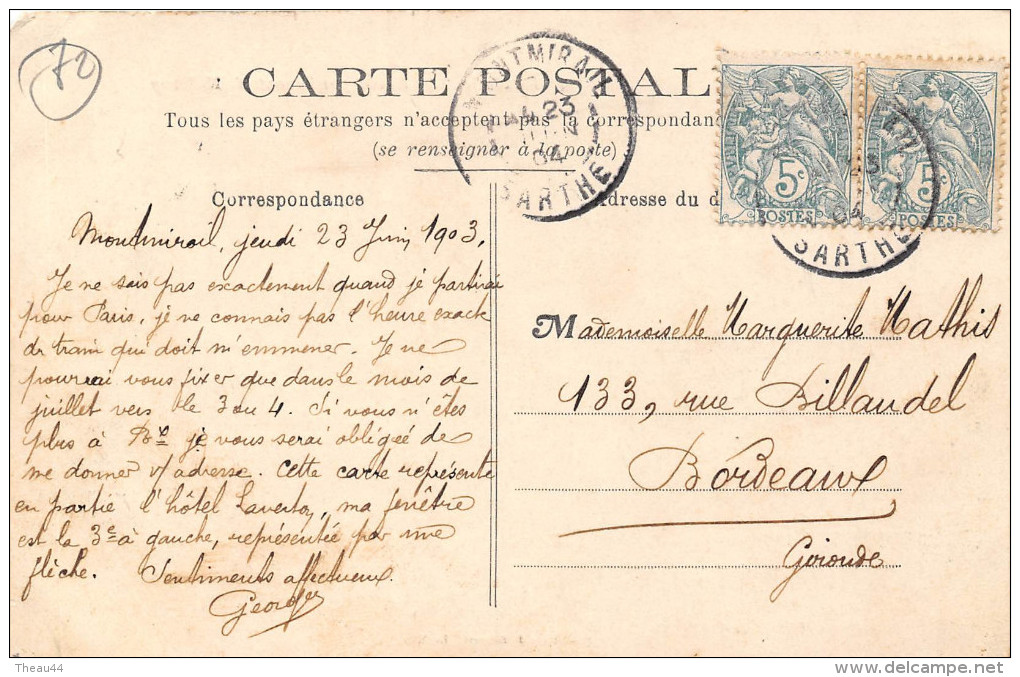 72
CARTE POSTAL
Tous les pays étrangers n'acceptent pas la correspondanc
(se renseigner à la poste)
MONTMIRAIL
23
JUIN
04
SARTHE
5c
POSTES
5c
POSTES
23
04
SARTHE
Correspondance
Adresse du d
Montmirail, jeudi 23 Juin 1903.
Je ne sais pas exactement quand je partirai
pour Paris, je ne connais pas l'heure exacte
du train qui doit m'emmener. Je ne
pourrai vous fixer que dans le mois de
juillet vers le 3 ou 4. Si vous n'êtes
plus à Bx je vous serai obligée de
me donner v/ adresse. Cette carte représente
en partie l'hôtel Laverton, ma fenêtre
est la 3e à gauche, représentée par une
flèche. Sentiments affectueux.
Georges
Mademoiselle Marguerite Mathis
133, rue Billaudel
Bordeaux
Gironde
Theau44
delcampe.net